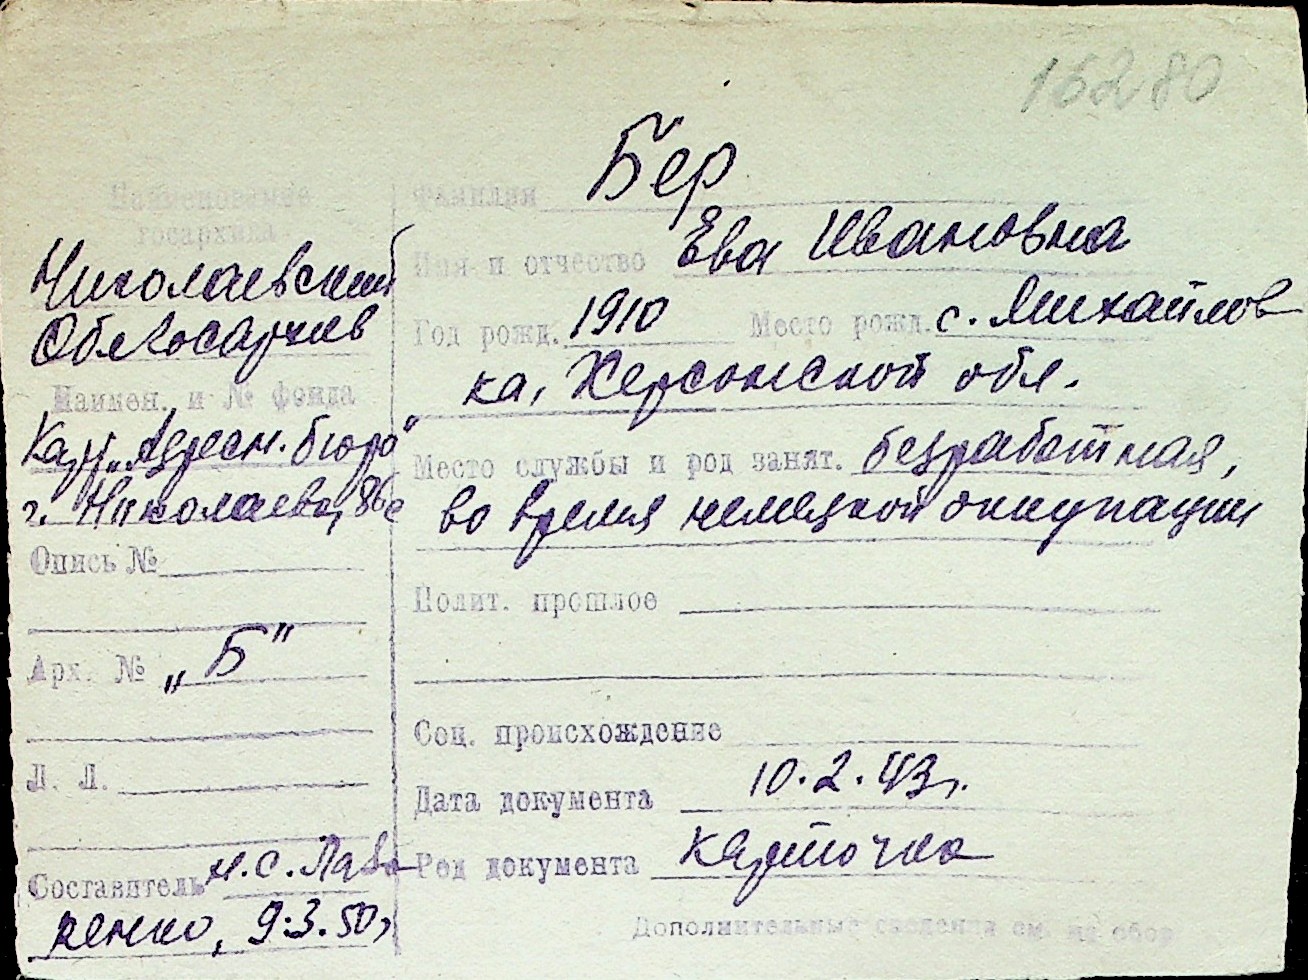 16280
Наименование
госархива
Николаевский
Облгосархив
Наимен. и № фонда
Карт. „Адресн. бюро"
г. Николаева, 86с
Опись №
Арх. № „Б"
Л. Л.
Составитель м.с. Лав
ренко, 9.3.50г
Фамилия Бер
Имя и отчество Ева Ивановна
Год рожд. 1910 Место рожд. с. Михайлов
ка, Херсонской обл.
Место службы и род занят. безработная,
во время немецкой оккупации
Полит. прошлое
Соц. происхождение
Дата документа 10.2.43г.
Род документа карточка
Дополнительные сведения см. на обор